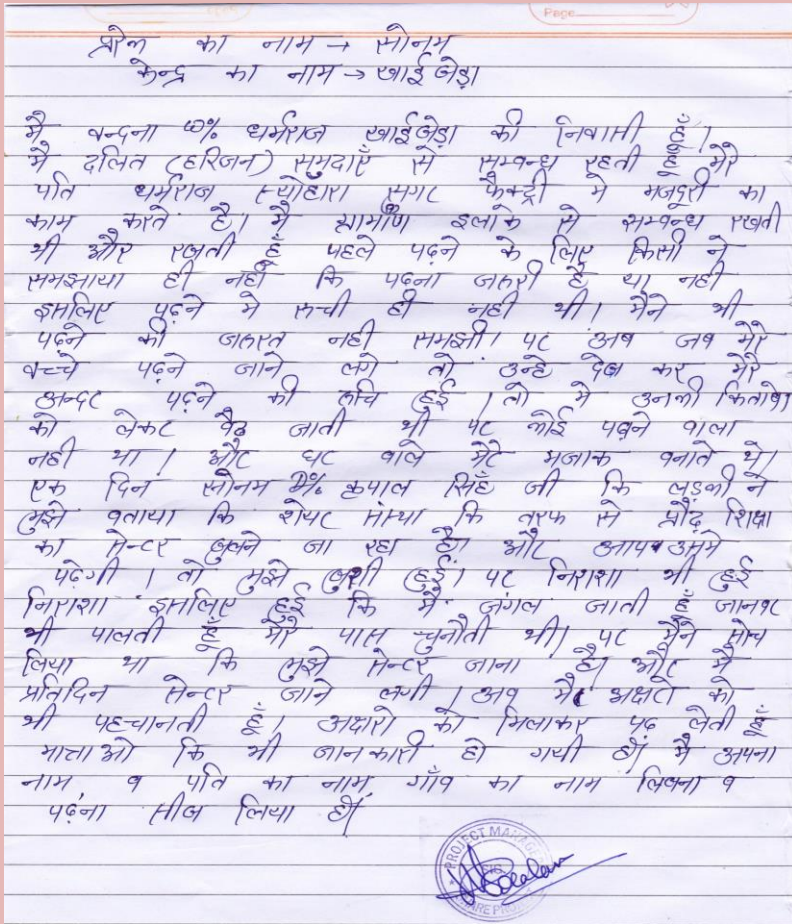 Page
प्रेरक का नाम → सोनम
केन्द्र का नाम → खाईखेड़ा
मै वन्दना W/o धर्मराज खाईखेड़ा की निवासी हूँ।
मै दलित (हरिजन) समुदाएँ से सम्वन्ध रहती हूँ मेरे
पति धर्मराज स्योहारा सुगर फैक्ट्री मे मजदूरी का
काम करते है। मै ग्रामीण इलाके से सम्वन्ध रखती
थी और रखती हूँ पहले पढ़ने के लिए किसी ने
समझाया ही नही कि पढना जरुरी है या नही
इसलिए पढ़ने मे रुची ही नही थी। मैने भी
पढने की जरुरत नही समझी। पर अव जव मेरे
वच्चे पढ़ने जाने लगे तो उन्हे देख कर मेरे
अन्दर पढ़ने की रुचि हुई। तो मे उनकी कितावो
को लेकर वैठ जाती थी पर कोई पढाने वाला
नही था। और घर वाले मेरे मजाक वनाते थे।
एक दिन सोनम D/o कृपाल सिंह जी कि लड़की ने
मुझे वताया कि शेयर संस्था कि तरफ से प्रौढ़ शिक्षा
का सेन्टर खुलने जा रहा है। और आप उसमे
पढ़ेगी। तो मुझे खुशी हुई। पर निराशा भी हुई
निराशा इसलिए हुई कि मै जंगल जाती हूँ जानवर
भी पालती हूँ मेरे पास चुनौती थी। पर मैने सोच
लिया था कि मुझे सेन्टर जाना है। और मै
प्रतिदिन सेन्टर जाने लगी। अव मै अक्षरो को
भी पहचानती हूँ। अक्षरो को मिलाकर पढ़ लेती हूँ
मात्राओ कि भी जानकारी हो गयी ही। मै अपना
नाम व पति का नाम, गाँव का नाम लिखना व
पढ़ना सीख लिया ही।
PROJECT MANAGER